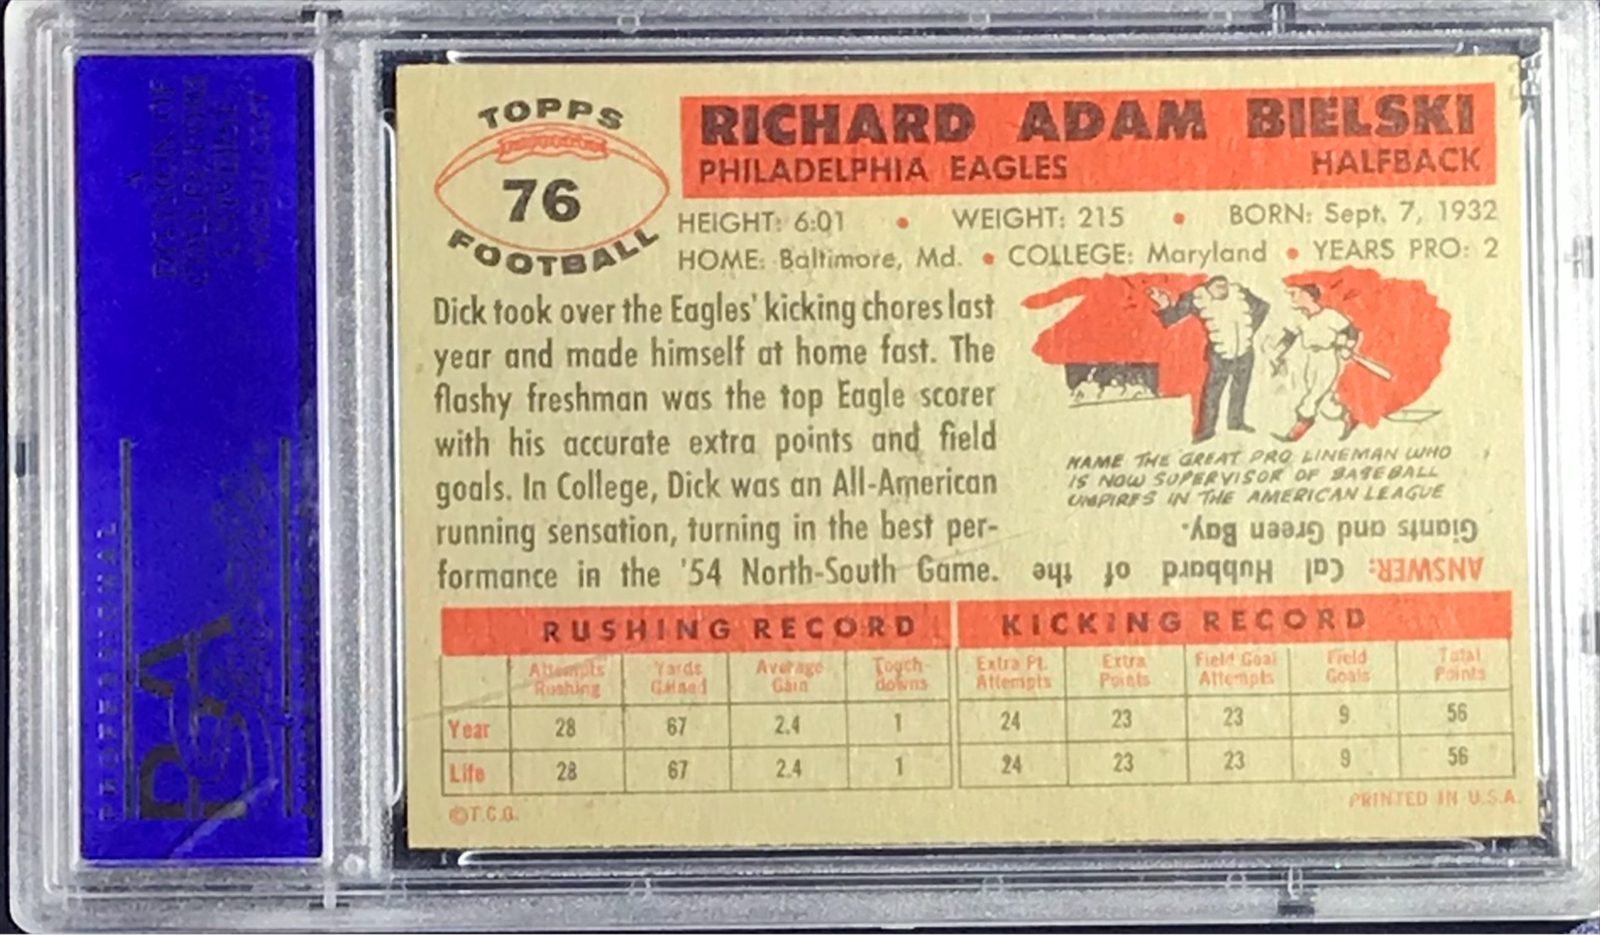 TOPPS
76
FOOTBALL
RICHARD ADAM BIELSKI
PHILADELPHIA EAGLES HALFBACK
HEIGHT: 6:01 • WEIGHT: 215 • BORN: Sept. 7, 1932
HOME: Baltimore, Md. • COLLEGE: Maryland • YEARS PRO: 2
Dick took over the Eagles' kicking chores last
year and made himself at home fast. The
flashy freshman was the top Eagle scorer
with his accurate extra points and field
goals. In College, Dick was an All-American
running sensation, turning in the best per-
formance in the '54 North-South Game.
NAME THE GREAT PRO LINEMAN WHO
IS NOW SUPERVISOR OF BASEBALL
UMPIRES IN THE AMERICAN LEAGUE
ANSWER: Cal Hubbard of the
Giants and Green Bay.
RUSHING RECORD KICKING RECORD
Attempts Rushing Yards Gained Average Gain Touch-downs Extra Pt. Attempts Extra Points Field Goal Attempts Field Goals Total Points
Year 28 67 2.4 1 24 23 23 9 56
Life 28 67 2.4 1 24 23 23 9 56
©T.C.G. PRINTED IN U.S.A.
PSA
PROFESSIONAL
A
DIVISION OF
COLLECTORS
UNIVERSE